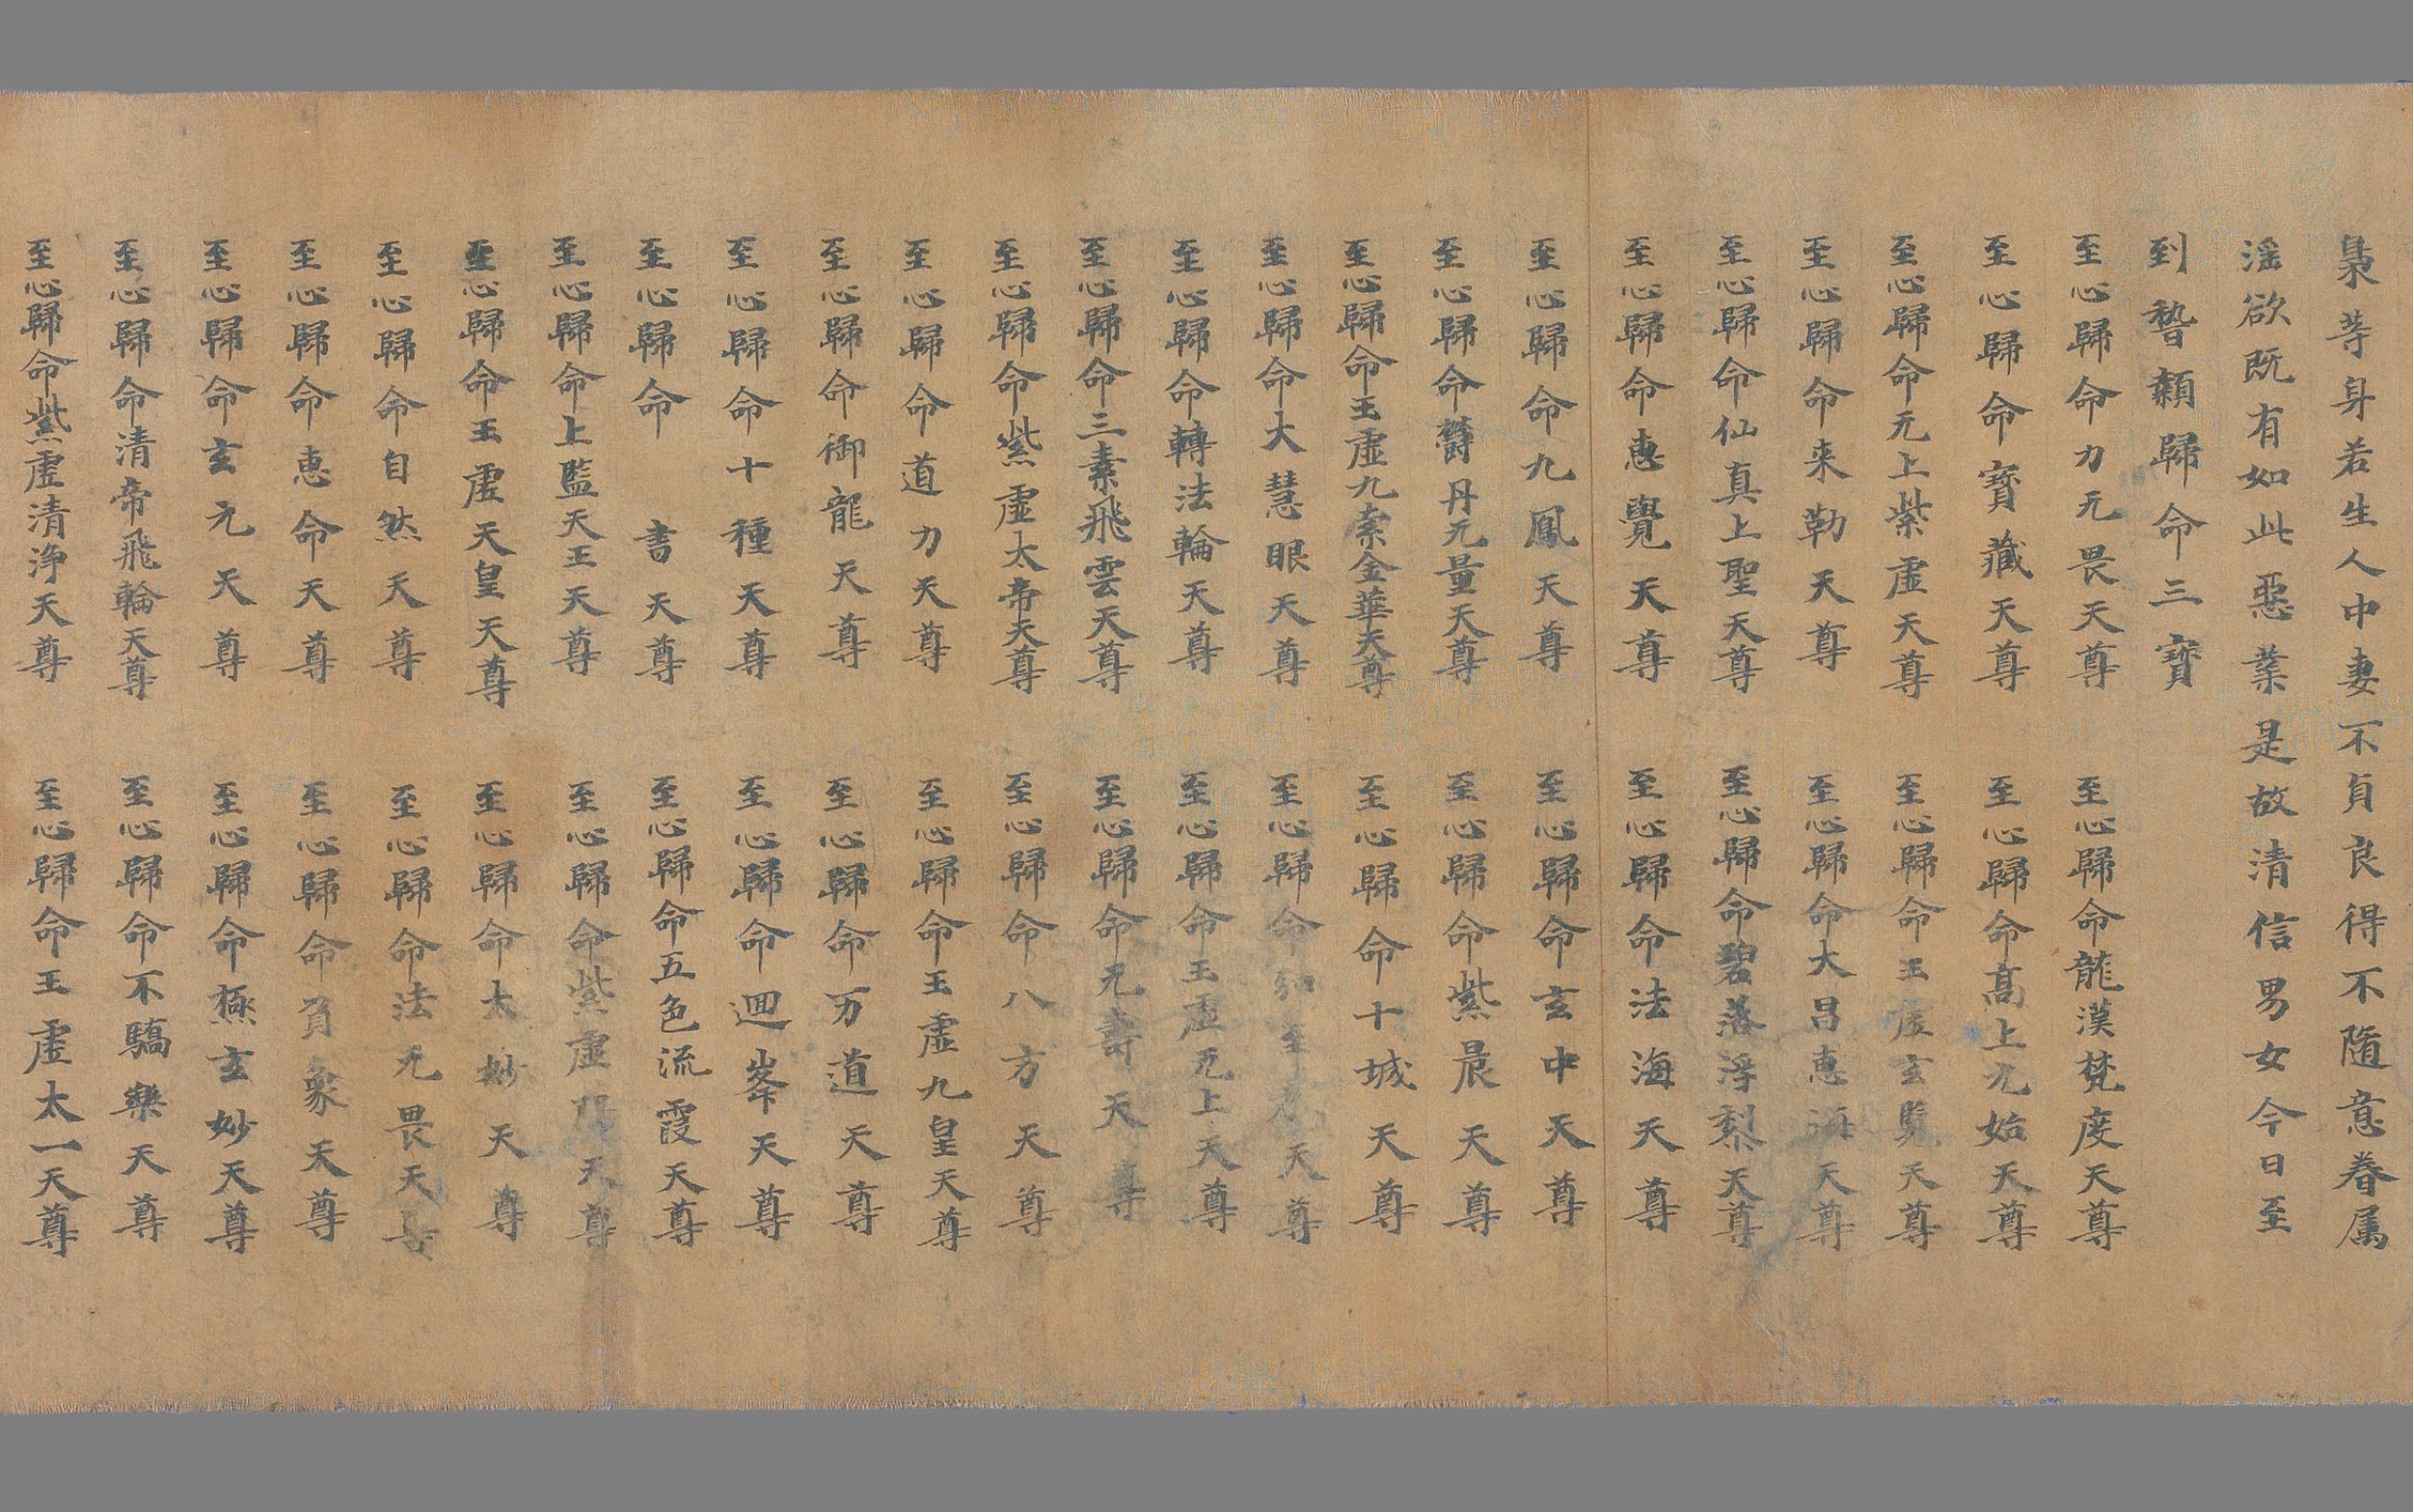 梟等身若生人中妻不貞良得不隨意眷属
淫欲既有如此惡業是故清信男女今日至
到稽顙歸命三寶
至心歸命力无畏天尊 至心歸命龍漢梵度天尊
至心歸命寶藏天尊 至心歸命髙上元始天尊
至心歸命无上紫虛天尊 至心歸命玉虛玄覽天尊
至心歸命来勒天尊 至心歸命大昌惠海天尊
至心歸命仙真上聖天尊 至心歸命碧落浮梨天尊
至心歸命惠覺天尊 至心歸命法海天尊
至心歸命九鳳天尊 至心歸命玄中天尊
至心歸命欝丹无量天尊 至心歸命紫晨天尊
至心歸命玉虛九素金華天尊 至心歸命十城天尊
至心歸命大慧眼天尊 至心歸命天尊
至心歸命轉法輪天尊 至心歸命玉虛无上天尊
至心歸命三素飛雲天尊 至心歸命元壽天尊
至心歸命紫虛太帝天尊 至心歸命八方天尊
至心歸命道力天尊 至心歸命玉虛九皇天尊
至心歸命御龍天尊 至心歸命万道天尊
至心歸命十種天尊 至心歸命迴峯天尊
至心歸命 書天尊 至心歸命五色流霞天尊
至心歸命上監天王天尊 至心歸命紫虛天尊
至心歸命玉虛天皇天尊 至心歸命太妙天尊
至心歸命自然天尊 至心歸命法无畏天尊
至心歸命惠命天尊 至心歸命負象天尊
至心歸命玄元天尊 至心歸命極玄妙天尊
至心歸命清帝飛輪天尊 至心歸命不驕樂天尊
至心歸命紫虛清浄天尊 至心歸命玉虛太一天尊